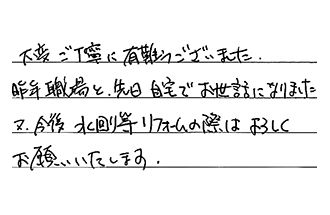 大変ご丁寧に有難うございました.
昨年職場と、先日自宅でお世話になりました
又、今後水回り等リフォームの際はよろしく
お願いいたします.